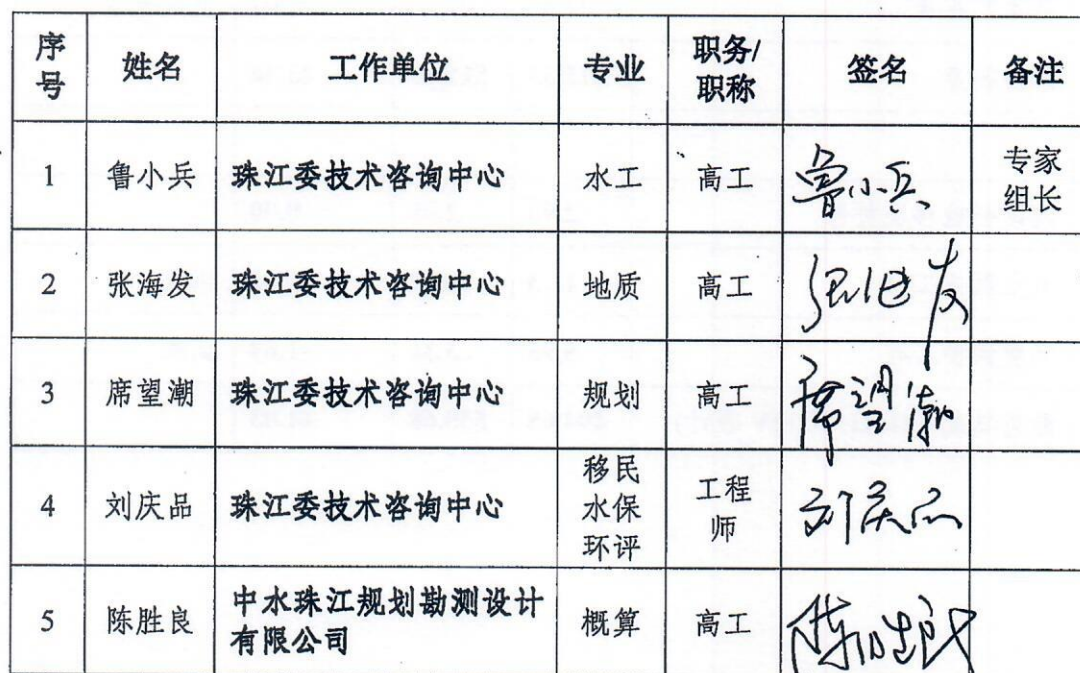 序号 姓名 工作单位 专业 职务/职称 签名 备注
1 鲁小兵 珠江委技术咨询中心 水工 高工 鲁小兵 专家组长
2 张海发 珠江委技术咨询中心 地质 高工 张海发
3 席望潮 珠江委技术咨询中心 规划 高工 席望潮
4 刘庆品 珠江委技术咨询中心 移民水保环评 工程师 刘庆品
5 陈胜良 中水珠江规划勘测设计有限公司 概算 高工 陈胜良